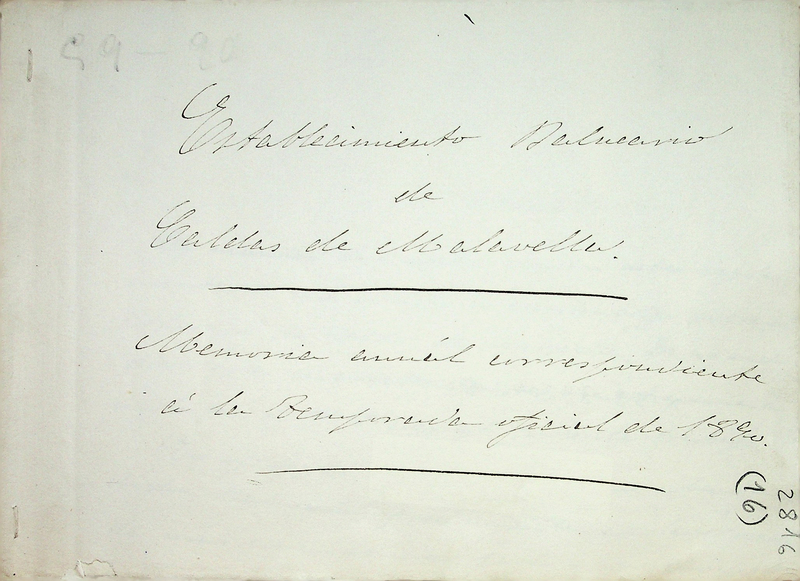 Establecimiento Balneario
de
Caldas de Malavella.
Memoria anuál correspondiente
á la temporada oficial de 1890.
(16)
2816